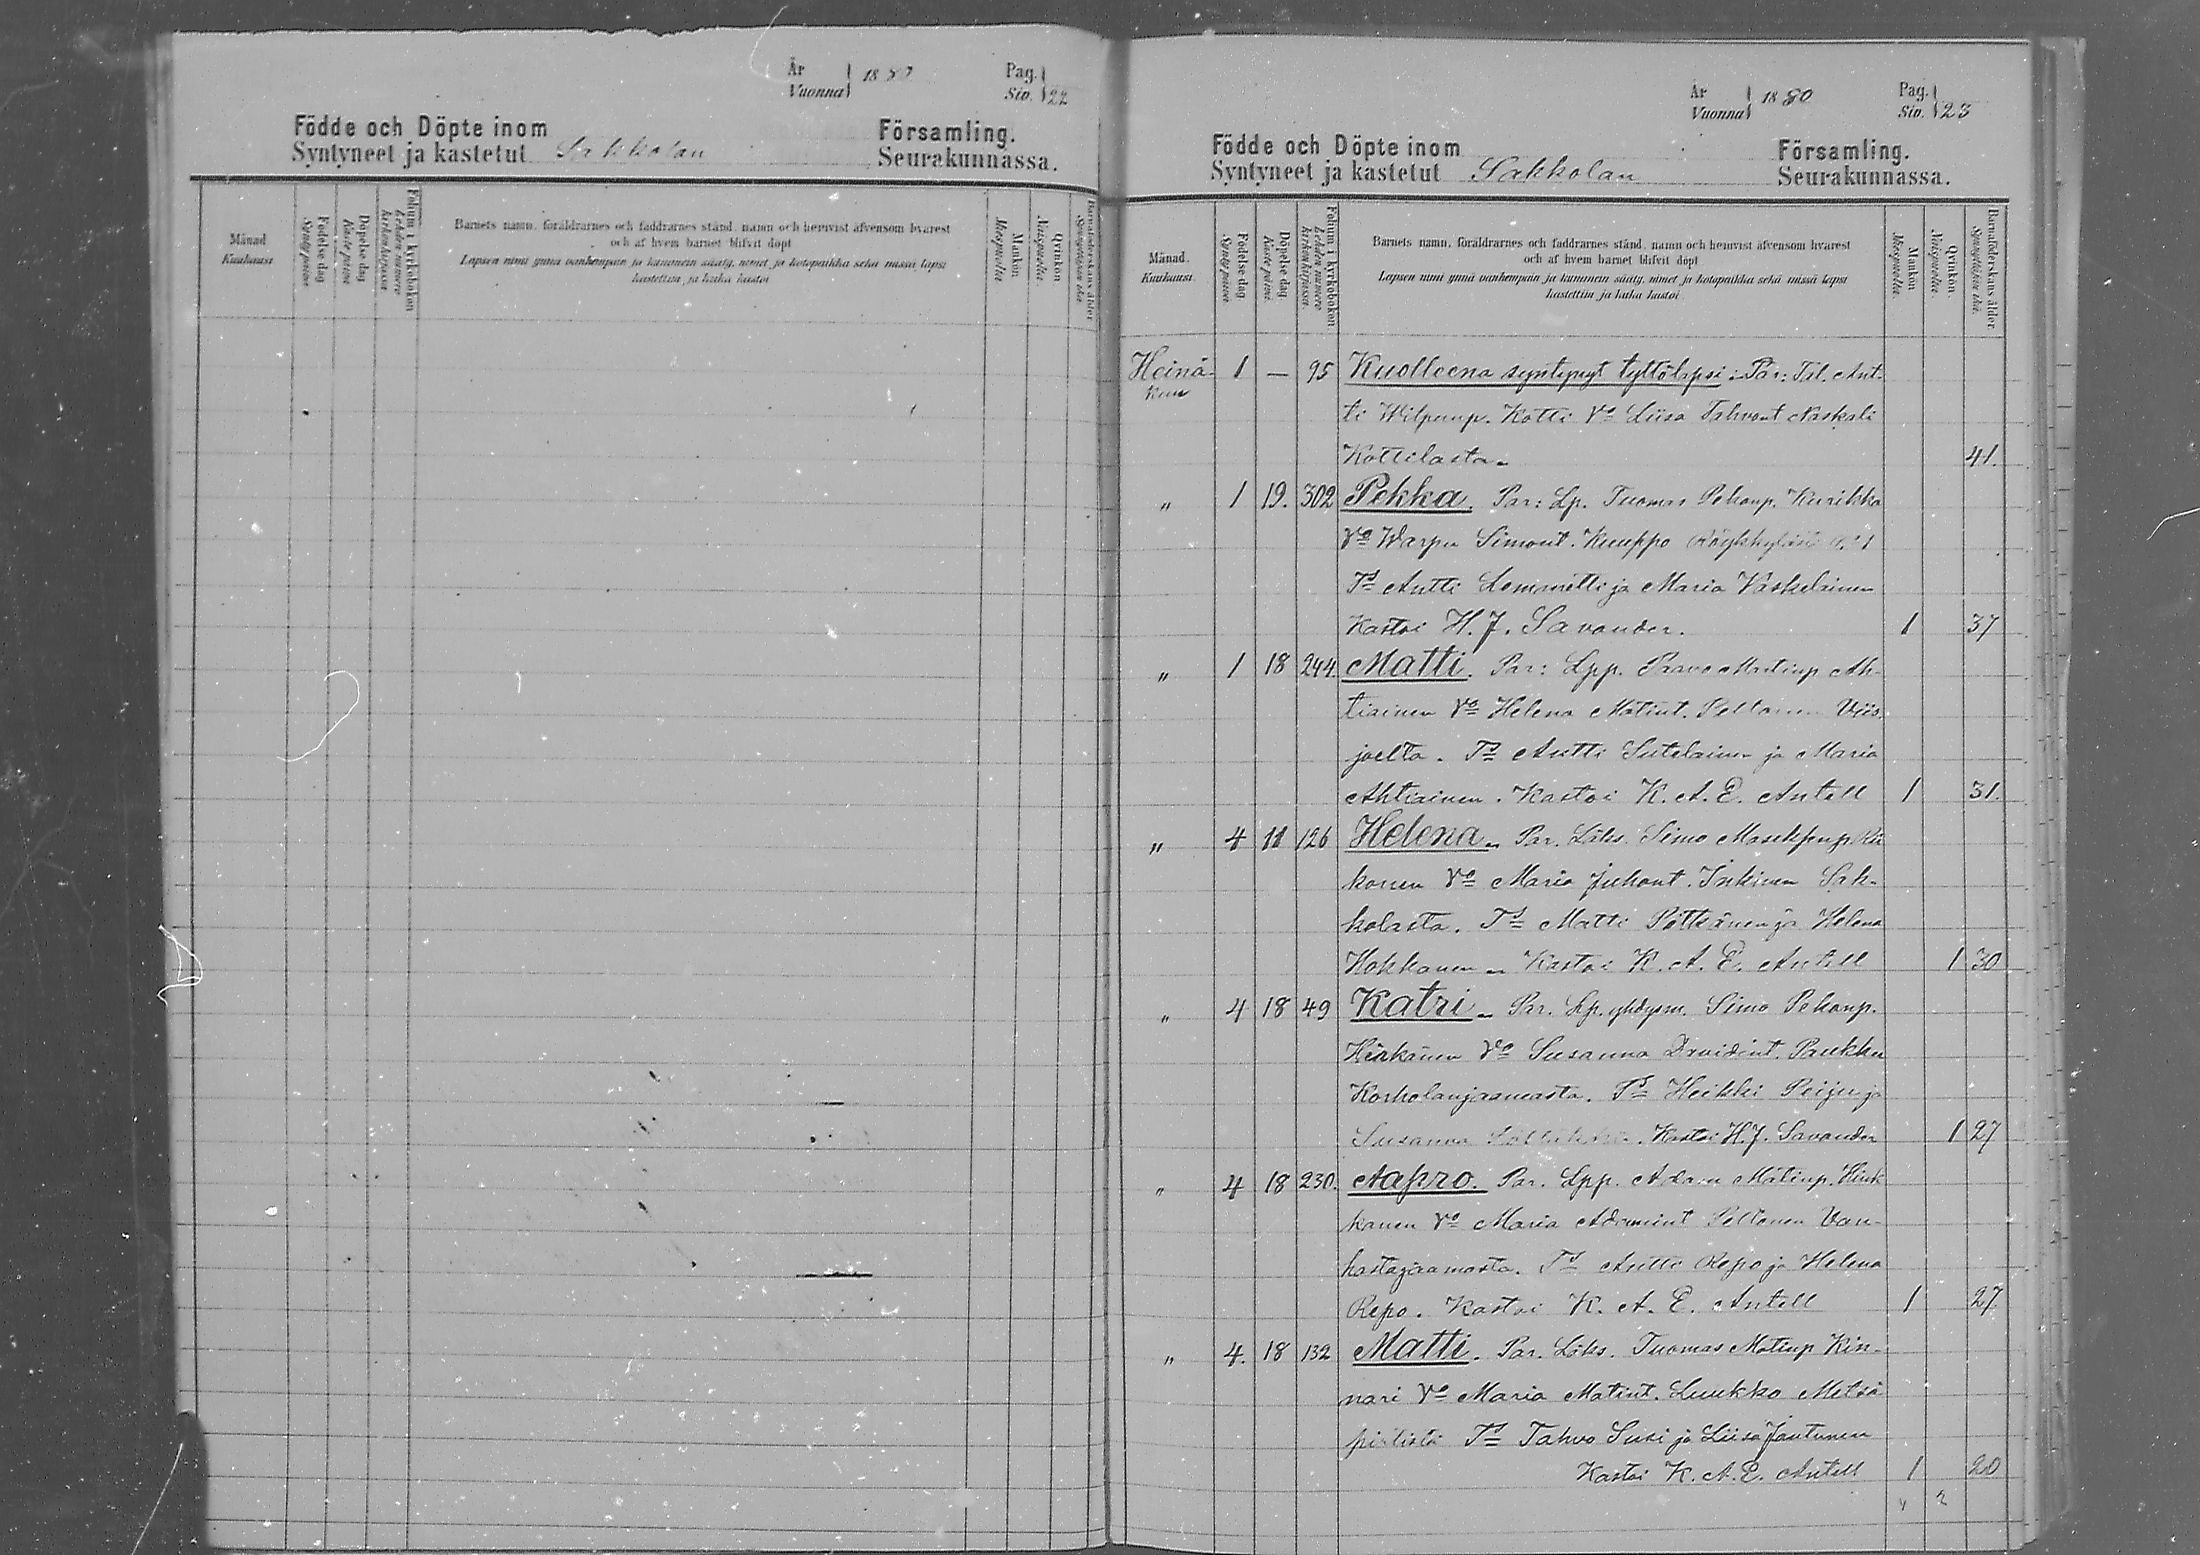 År 1880 Pag.
Vuonna Siv. 22
Födde och Döpte inom Församling.
Syntyneet ja kastetut Sakkolan Seurakunnassa.
Månad Kuukausi
Födelse dag Syntypäivä
Döpelse dag Kastepäivä
Folium i kyrkoboken Lehden numero kirkonkirjassa
Barnets namn, föräldrarnes och faddrarnes stånd, namn och hemvist äfvensom hvarest
och af hvem barnet blifvit döpt
Lapsen nimi ynnä vanhempain ja kummein sääty, nimet ja kotopaikka sekä missä lapsi
kastettiin ja kuka kastoi
Mankön Miespuolia
Qvinkön Naispuolia
Barnaföderskans ålder Synnyttäjän ikä
År 1880 Pag.
Vuonna Siv. 23
Födde och Döpte inom Församling.
Syntyneet ja kastetut Sakkolan Seurakunnassa.
Månad. Kuukausi.
Födelse dag Syntypäivä
Döpelse dag Kastepäivä.
Folium i kyrkoboken Lehden numero kirkonkirjassa.
Barnets namn, föräldrarnes och faddrarnes stånd, namn och hemvist äfvensom hvarest
och af hvem barnet blifvit döpt
Lapsen nimi ynnä vanhempain ja kummein sääty, nimet ja kotopaikka sekä missä lapsi
kastettiin ja kuka kastoi
Mankön Miespuolia.
Qvinkön. Naispuolia.
Barnaföderskans ålder. Synnyttäjän ikä.
Heinä- 1 — 95 Kuolleena syntynyt tyttölapsi. Par: Tal. Ant-
kuu ti Wilpunp. Kotti Vo Liisa Tahvont Naskali
Kottilasta. 41.
" 1 19. 302 Pekka. Par: Lp. Tuomas Pekanp. Kurikka
Vo Warpu Simont. Kuuppo
Td Antti Lemmetti ja Maria Väskeläinen
Kastoi H. J. Savander. 1 37
" 1 18 244. Matti. Par: Lpp. Paavo Martinp Ah-
tiainen Vo Helena Matint. Peltonen Viis-
joelta. Td Antti Sutelainen ja Maria
Ahtiainen. Kastoi K. A. E. Antell 1 31.
" 4 11 126 Helena. Par. Läks. Simo
konen Vo Maria Juhont. Inkinen Sak-
kolasta. Td Matti Pitkänen ja Helena
Hokkanen. Kastoi K. A. E. Antell 1 30
" 4 18 49 Katri. Par. Lp. yhdysm. Simo Pekanp.
Hinkanen Vo Susanna Davidint. Paukku
Korholanjaamasta. Td Heikki Peiju ja
Susanna Kastoi H. J. Savander 1 27
" 4 18 230. Aapro. Par. Lpp. Adam Matinp. Hink
kanen Vo Maria Adamint Peltonen Van-
hastajaamasta. Td Antti Repo ja Helena
Repo. Kastoi K. A. E. Antell 1 27
" 4. 18 132 Matti. Par. Läks. Tuomas Matinp Kin-
nari Vo Maria Matint. Luukko Metsä
pirtistä Td Tahvo Susi ja Liisa Jantunen
Kastoi K. A. E. Antell 1 20
4 2